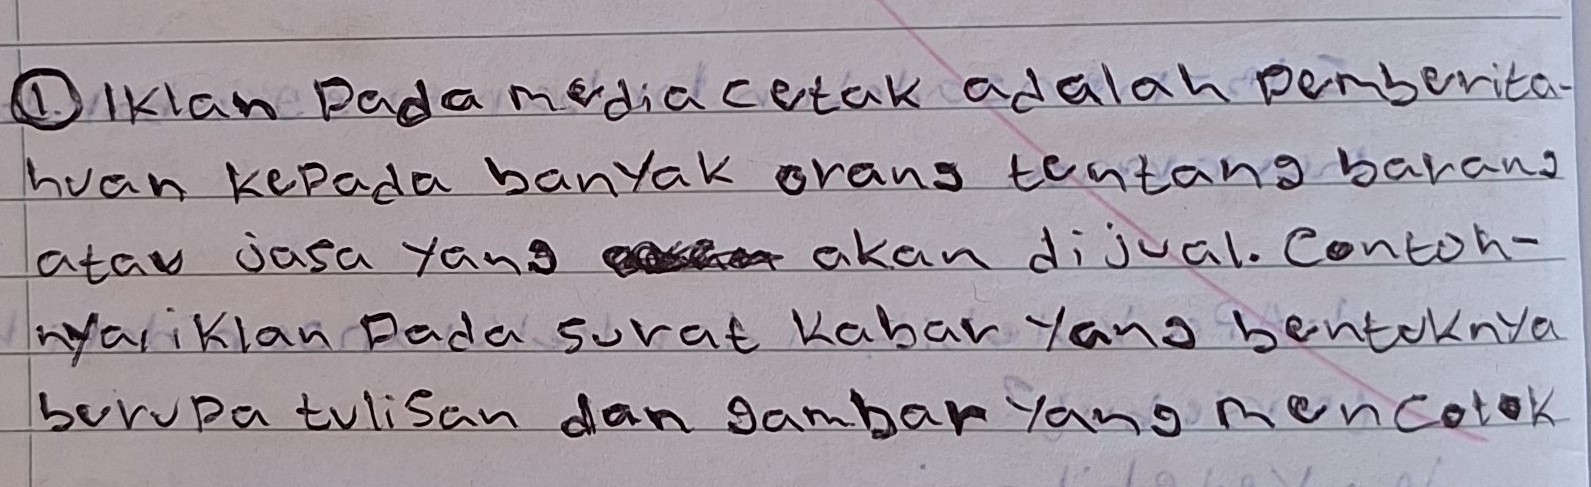 1. Iklan pada media cetak adalah pemberita-
huan kepada banyak orang tentang barang
atau jasa yang akan dijual. Contoh-
nya, iklan pada surat kabar yang bentuknya
berupa tulisan dan gambar yang mencolok